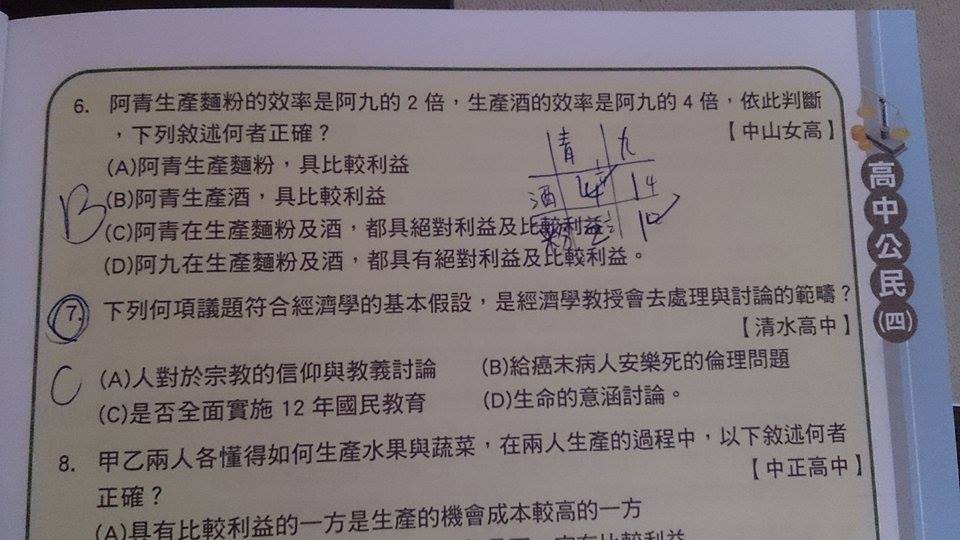 6. 阿青生產麵粉的效率是阿九的 2 倍，生產酒的效率是阿九的 4 倍，依此判斷
，下列敘述何者正確？【中山女高】
(A)阿青生產麵粉，具比較利益
(B)阿青生產酒，具比較利益
(C)阿青在生產麵粉及酒，都具絕對利益及比較利益。
(D)阿九在生產麵粉及酒，都具有絕對利益及比較利益。
B
青 九
酒 4 1
7. 下列何項議題符合經濟學的基本假設，是經濟學教授會去處理與討論的範疇？
【清水高中】
C
(A)人對於宗教的信仰與教義討論 (B)給癌末病人安樂死的倫理問題
(C)是否全面實施 12 年國民教育 (D)生命的意涵討論。
8. 甲乙兩人各懂得如何生產水果與蔬菜，在兩人生產的過程中，以下敘述何者
正確？【中正高中】
(A)具有比較利益的一方是生產的機會成本較高的一方
高中公民(四)